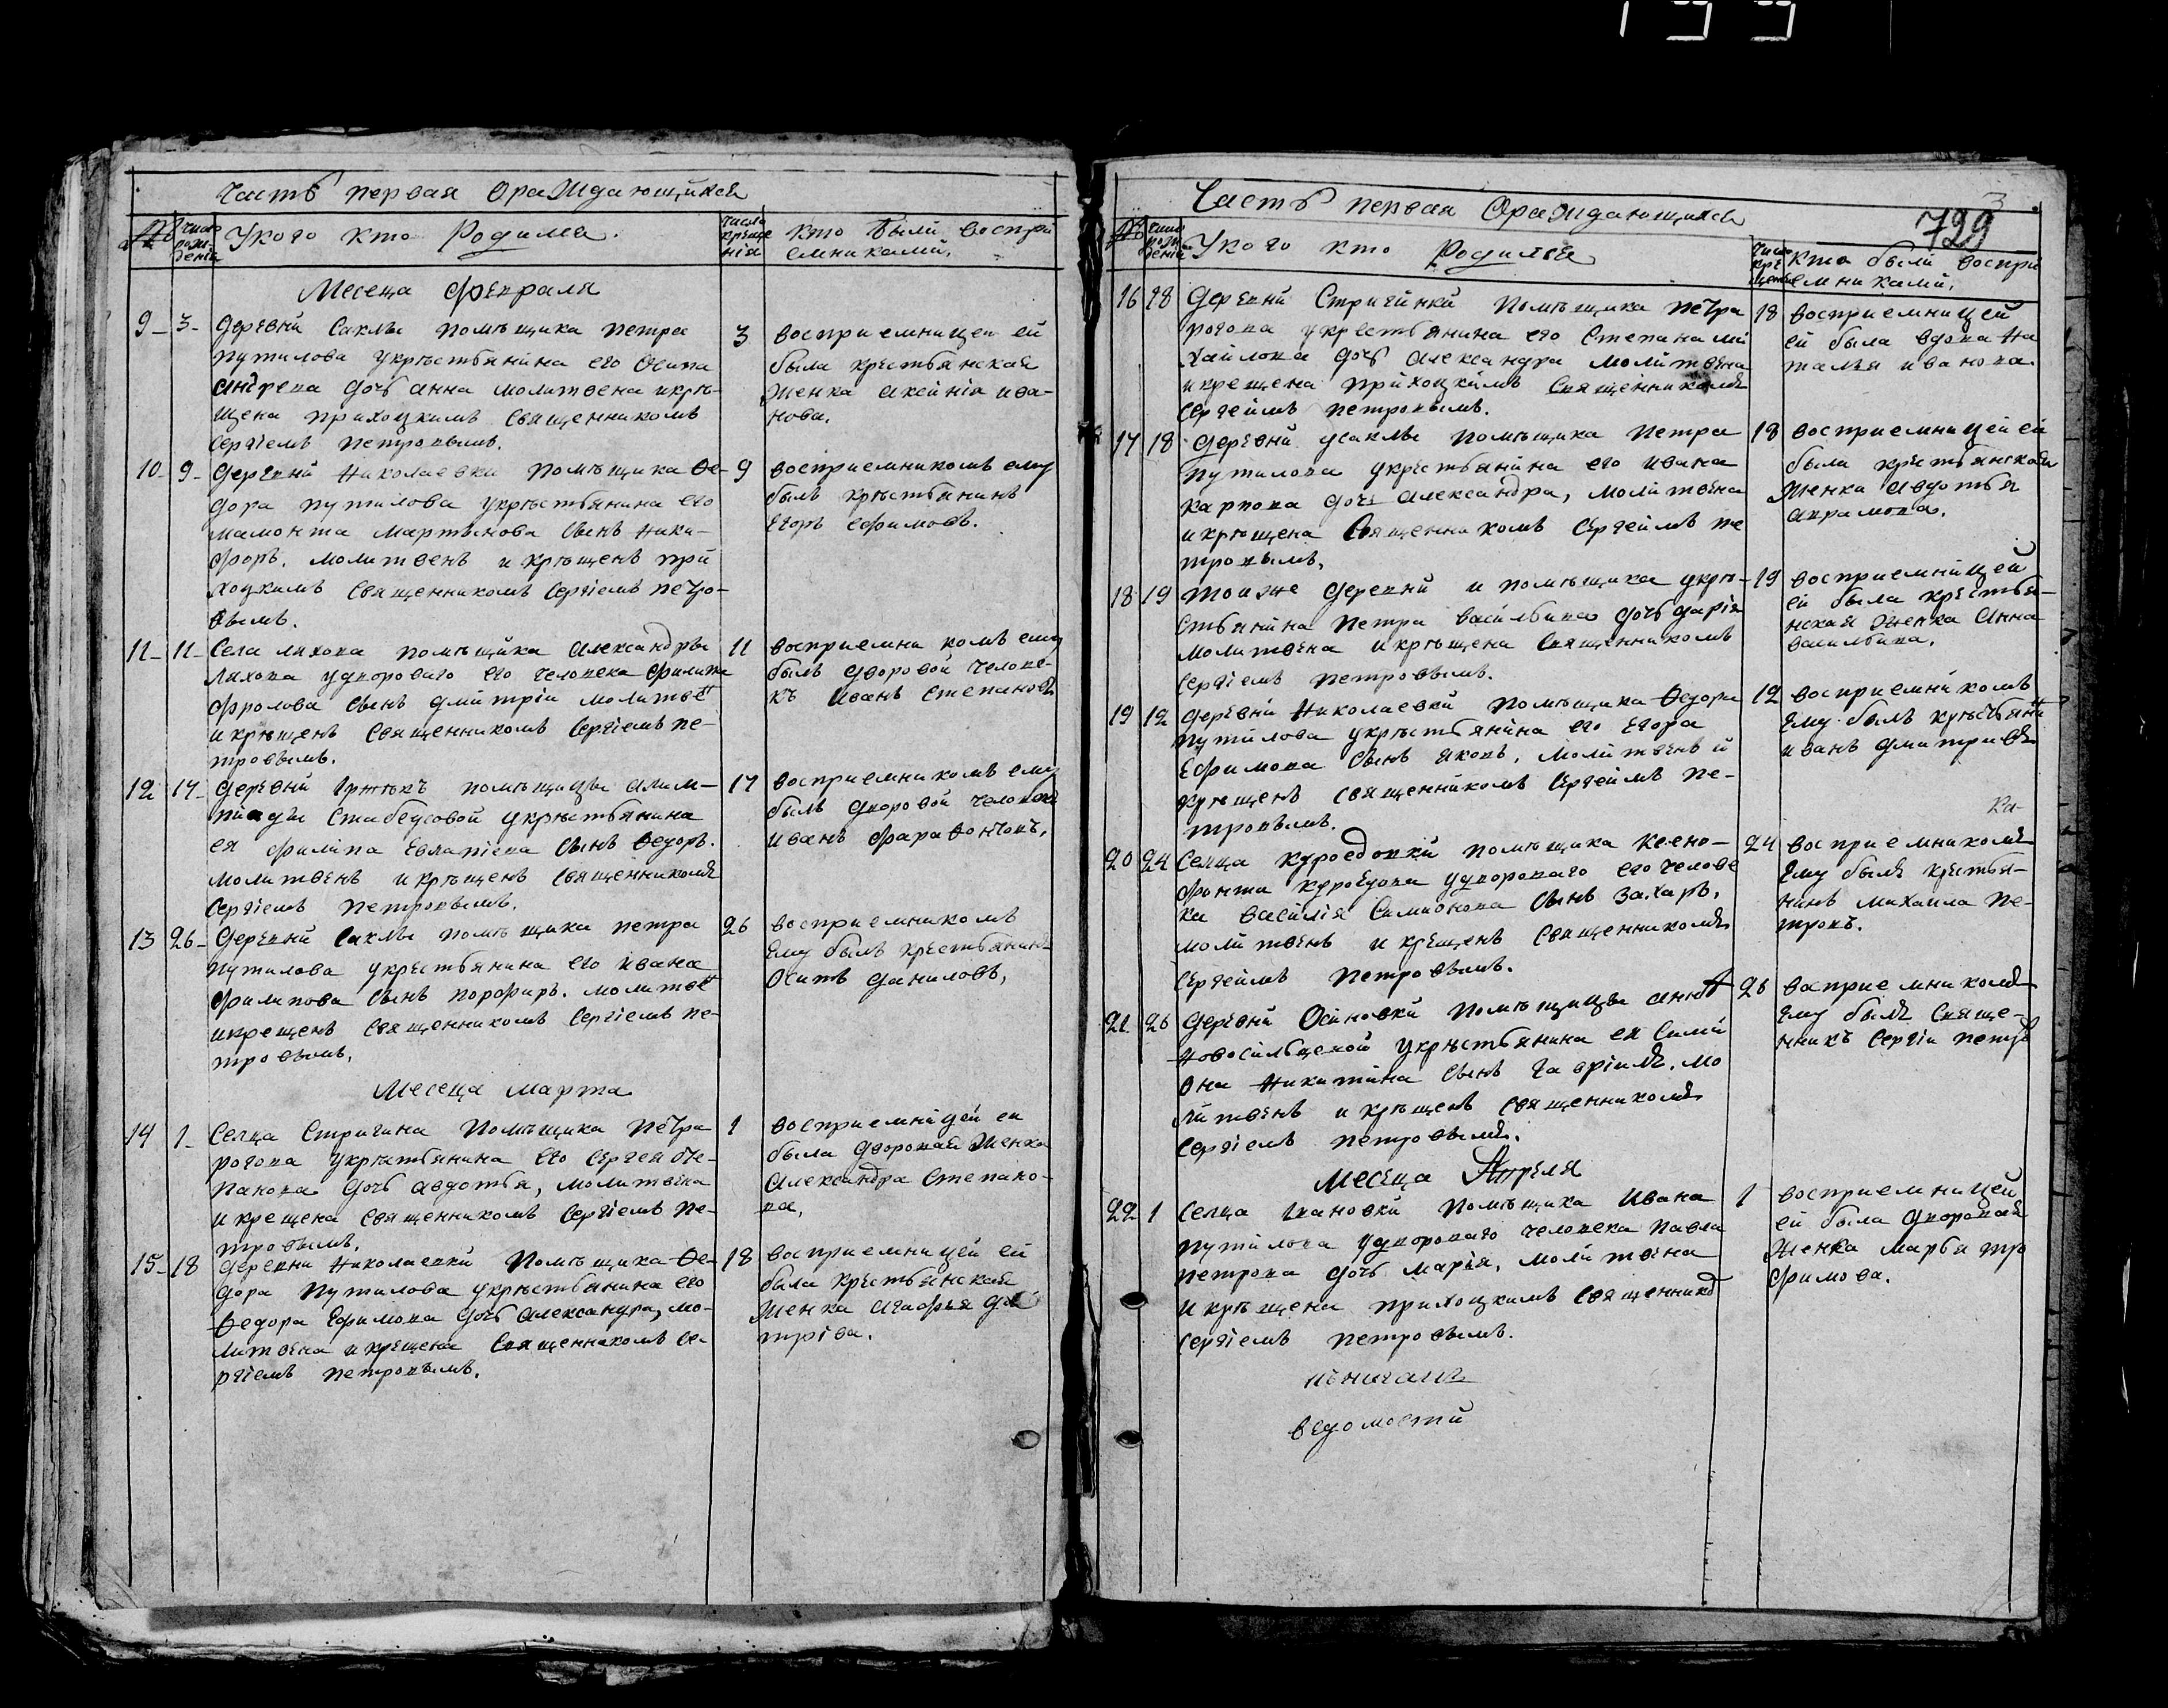 Часть первая Ораждающихся
№ число рожденія Укого кто Родился. число крещенія кто были воспри
емниками.
Месеца февраля
9 3 деревни Саклы помѣщика петра
путилова укрѣстьянина его Осипа
андрева дочь анна молитвена икрѣ-
щена прихоцкимъ Священникомъ
Сергіемъ петровымъ.
3 восприемницеи ей
была крестьянская
Женка аксинія ива-
нова.
10 9 деревни Николаевки помѣщика Ѳе-
дора путилова укрѣстьянина его
мамонта мартынова сынъ Ники-
форъ. молитвенъ и крѣщенъ при
хоцкимъ священникомъ Сергіемъ петро-
вымъ.
9 восприемникомъ ему
былъ крѣстьянинъ
Егоръ Ефимовъ.
11 11 Села лихова помѣщика александры
лихова удворового его человека филипа
фролова сынъ дмитріи молитвѣ
и крѣщенъ священникомъ Сергіемъ пе-
тровымъ.
11 восприемникомъ ему
былъ дворовой челове-
къ Иванъ Степановъ
12 17 деревни помѣщицы алим-
пиады укрѣстьянина
ея филипа Евлапіева сынъ Ѳедоръ.
молитвенъ и крѣщенъ Священникомъ
Сергіемъ петровымъ.
17 восприемникомъ ему
былъ дворовой человекъ
Иванъ
13 26 деревни Саклы помѣщика петра
путилова укрестьянина его ивана
филипова сынъ порфиръ. молитвѣ
икрещенъ священникомъ Сергіемъ пе-
тровымъ.
26 восприемникомъ
Ему былъ крестьянинъ
Осипъ даниловъ,
Месеца марта
14 1 Селца Стригина помѣщика петра
рогова укрѣстьянина его Сергея Сте-
панова дочь авдотья, молитвена
и крещена священникомъ Сергіемъ пе-
тровымъ.
1 восприемницей ей
была дворовая Женка
александра Степано-
ва,
15 18 деревни Николаевки помѣщика Ѳе-
дора Путилова укрѣстьянина его
Ѳедора Ефимова дочь александра, мо-
литвена и крещена Священникомъ Се-
ргіемъ петровымъ.
18 восприемницей ей
была крестьянская
Женка агафия
тріева.
3
729
Часть первая Ораждающихся
№ число рожденія Укого кто Родился число крещенія кто были воспри
емниками.
16 18 деревни Стригинки помѣщика петра
рогова укрестьянина его Степана ми
хайлова дочь александра молитвена
и крещена прихоцкимъ Священникомъ
Сергеймъ петровымъ.
18 восприемницей
ей была вдова На
талья иванова.
17 18 деревни усаклы помѣщика петра
путилова укрестьянина его ивана
карпова дочь александра, молитвена
и крѣщена Священникомъ Сергеймъ пе
тровымъ,
18 восприемницей ей
была крестьянская
Женка авдотья
аврамова.
18 19 тоиже деревни и помѣщика укрѣ-
стьянина петра васильива дочь дарія
молитвена и крѣщена Священникомъ
Сергіемъ петровымъ.
19 восприемницей
ей была крестья-
нская Женка анна
васильива.
19 12 деревни Николаевки помѣщика Ѳедора
путилова укрѣстьянина его Егора
Ефимова сынъ яковъ, молитвенъ и
крѣщенъ священникомъ Сергеймъ пе-
тровымъ.
12 восприемникомъ
Ему былъ крѣстьяни
иванъ дмитриевъ
20 24 Селца куроедовки помѣщика ксено-
фонта куроедова удворового его челове
ка василія Симионова сынъ Захаръ.
молитвенъ и крещенъ священникомъ
Сергеймъ петровымъ.
24 восприемникомъ
Ему былъ крестья-
нинъ михаила пе-
тровъ.
21 26 деревни Осиновки помѣщицы анны
Новосильцевой укрѣстьянина ея Сими
она Никитина сынъ Гавріилъ. мо
литвенъ и крѣщенъ священникомъ
Сергіемъ петровымъ.
26 восприемникомъ
Ему былъ Свяще-
нникъ Сергіи петро
Месеца Апреля
22 1 Селца Ивановки помѣщика Ивана
путилова удворового человека павла
петрова дочь марія, молитвена
и крѣщена прихоцкимъ священнико
Сергіемъ петровымъ.
1 восприемницей
ей была дворовая
Женка марья тро
фимова.
ведомости